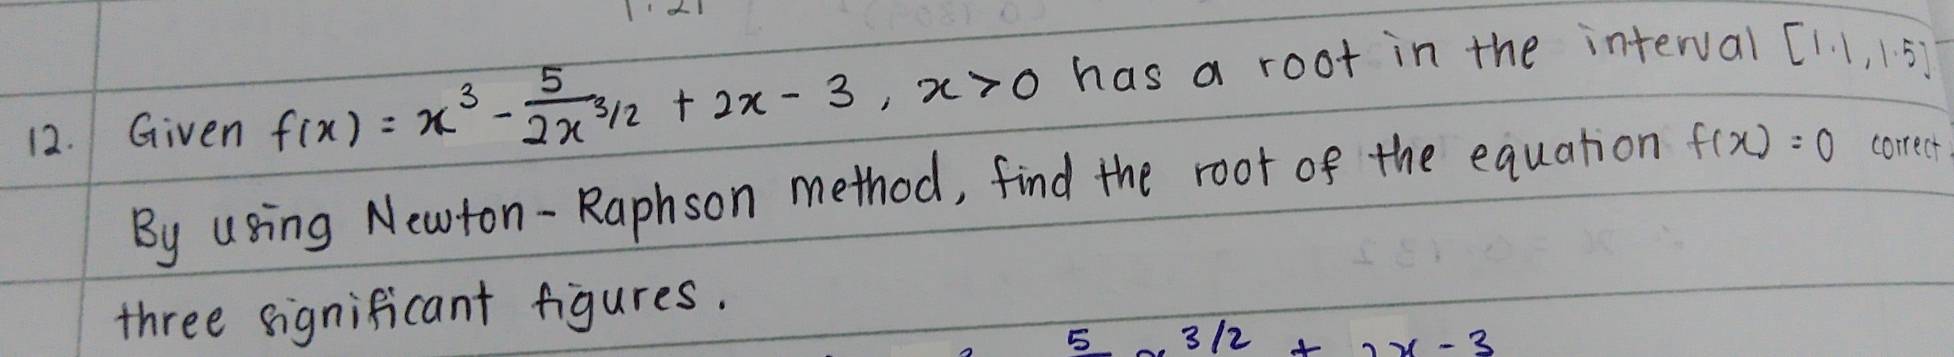 1.21
12. Given f(x) = x³ - 5/2x^3/2 + 2x - 3, x > 0 has a root in the interval [1.1, 1.5]
By using Newton-Raphson method, find the root of the equation f(x) = 0 correct
three significant figures.
5 x^3/2 + 2x - 3